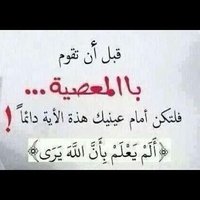 قبل أن تقوم
باالمعصية...
فلتكن أمام عينيك هذة الأية دائماً !
﴿أَلَمْ يَعْلَمْ بِأَنَّ اللَّهَ يَرَى﴾